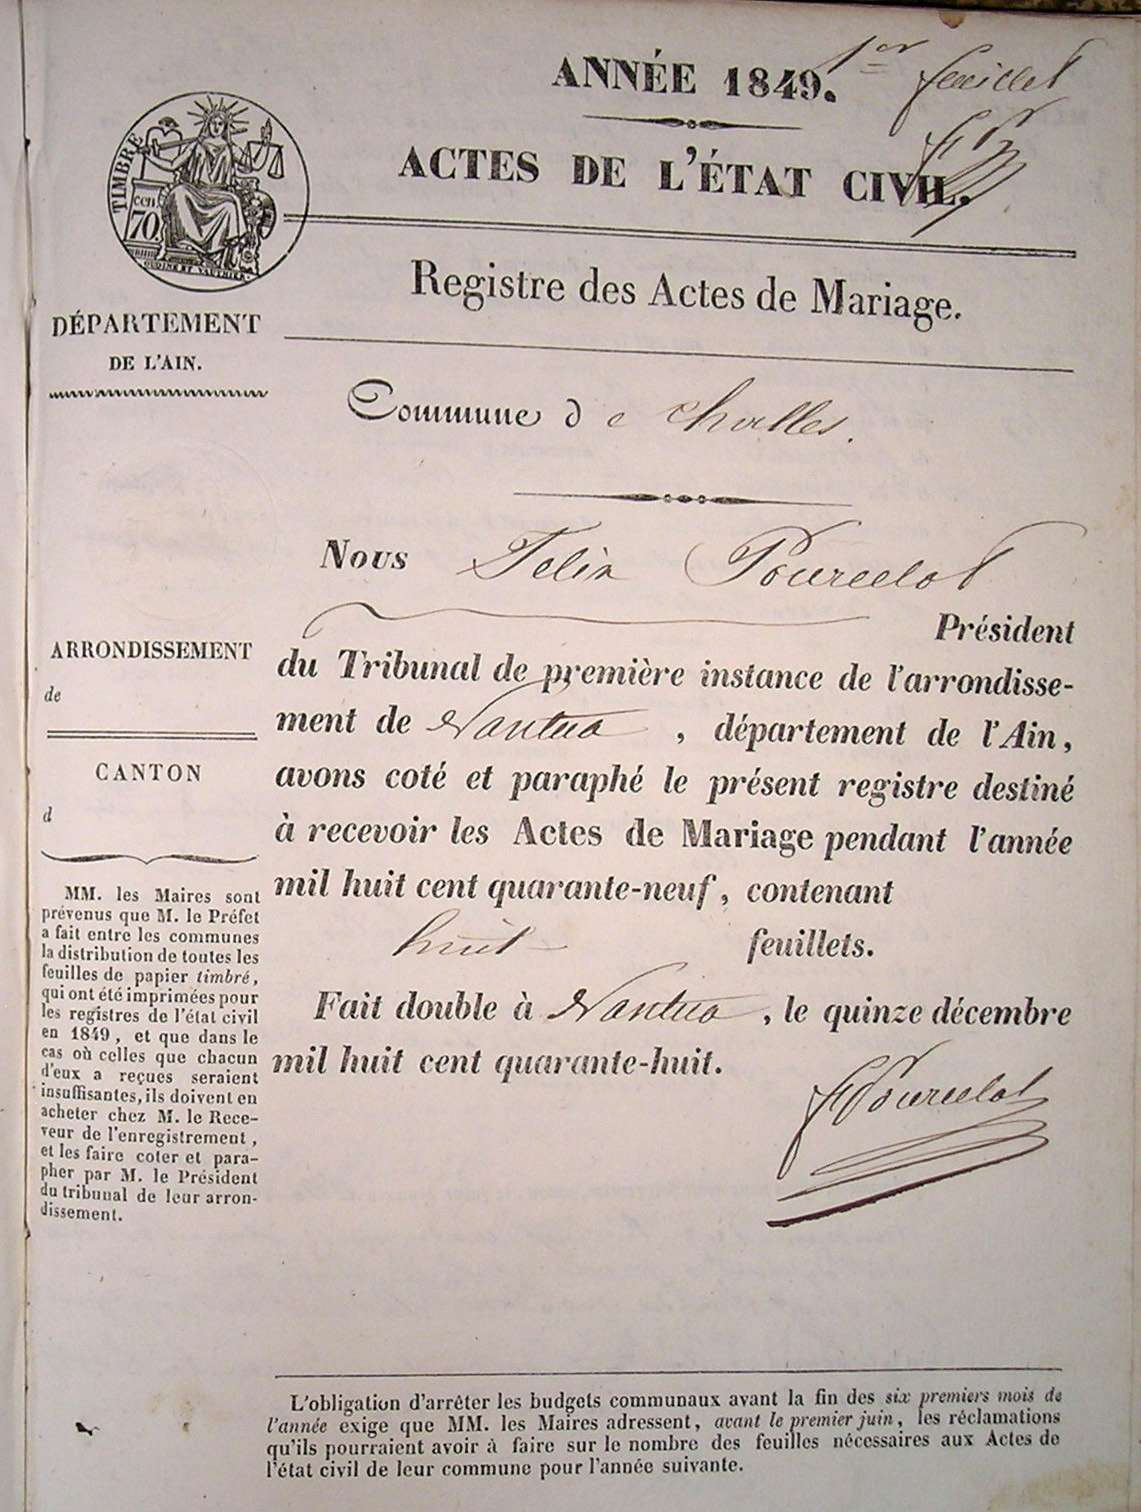 1er feuillet
ANNÉE 1849.
ACTES DE L'ÉTAT CIVIL.
TIMBRE
cen
70
OUDINÉ ET VAUTHIER
Registre des Actes de Mariage.
DÉPARTEMENT
DE L'AIN.
Commune de Challes.
Nous Felix Pourcelot
Président
du Tribunal de première instance de l'arrondisse-
ment de Nantua, département de l'Ain,
avons coté et paraphé le présent registre destiné
à recevoir les Actes de Mariage pendant l'année
mil huit cent quarante-neuf, contenant
huit feuillets.
Fait double à Nantua, le quinze décembre
mil huit cent quarante-huit.
F Pourcelot
ARRONDISSEMENT
de
CANTON
d
MM. les Maires sont
prévenus que M. le Préfet
a fait entre les communes
la distribution de toutes les
feuilles de papier timbré,
qui ont été imprimées pour
les registres de l'état civil
en 1849, et que dans le
cas où celles que chacun
d'eux a reçues seraient
insuffisantes, ils doivent en
acheter chez M. le Rece-
veur de l'enregistrement,
et les faire coter et para-
pher par M. le Président
du tribunal de leur arron-
dissement.
L'obligation d'arrêter les budgets communaux avant la fin des six premiers mois de
l'année exige que MM. les Maires adressent, avant le premier juin, les réclamations
qu'ils pourraient avoir à faire sur le nombre des feuilles nécessaires aux Actes de
l'état civil de leur commune pour l'année suivante.